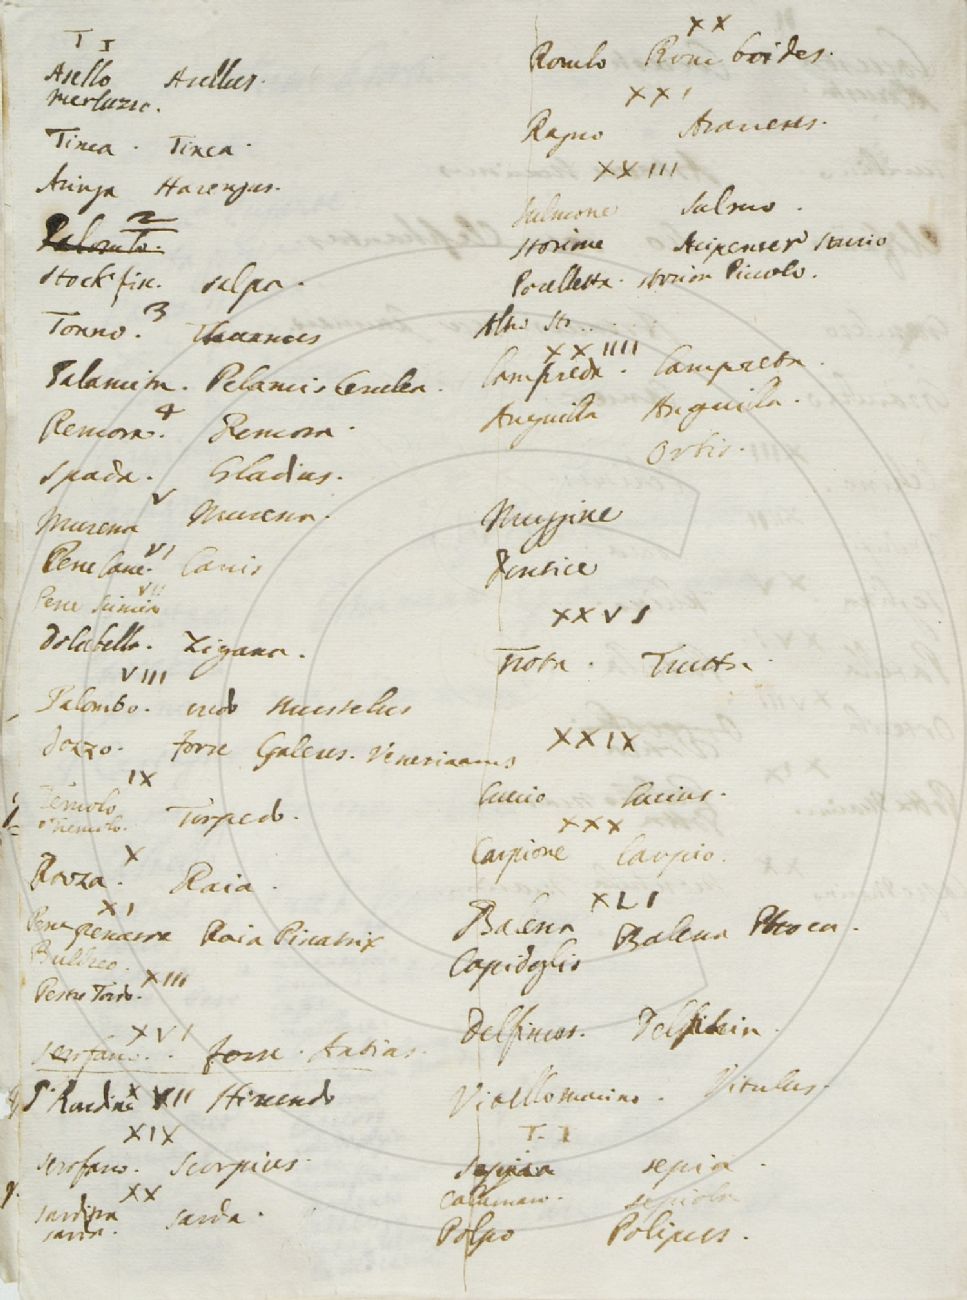 T I
Asello Asellus.
Merluzzo.
Tinca. Tinca.
Aringa Harengus.
2
Palombo.
Stock fisc. Salpa.
3
Tonno.
Palamita. Pelamis Cerulea.
4
Remora. Remora.
Spada. Gladius.
V
Murena Murena.
VI
Pesce Cane. Canis
VII
Pesce
Zigana.
VIII
Palombo. Musselus
forse Galeus.
IX
Temolo
o Themolo. Torpedo.
X
Razza. Raia.
XI
Raia
XIII
Pesce Tordo.
XVI
Scorfano. forse Antias.
XVII
Rondine Hirundo
XIX
Scorfano. Scorpius.
XX
Sardina Sarda.
Sarda.
XX
Rombo Romboides.
XXI
Ragno Araneus.
XXIII
Salmone Salmo.
Storione Acipenser Sturio
Porcelletta. Storion Piccolo.
Altro Sto...
XXIIII
Lampreda. Lampreta.
Anguila Anguila.
Orbis.
Muggine
XXVI
Trota. Trutta.
XXIX
Luccio Lucius.
XXX
Carpione Carpio.
XLI
Balena Balena Phoca.
Capidoglio
Delfinus. Delphin.
Vitello marino. Vitulus.
T. I
Seppia sepia.
Calamaro. sepiola
Polpo Polipus.